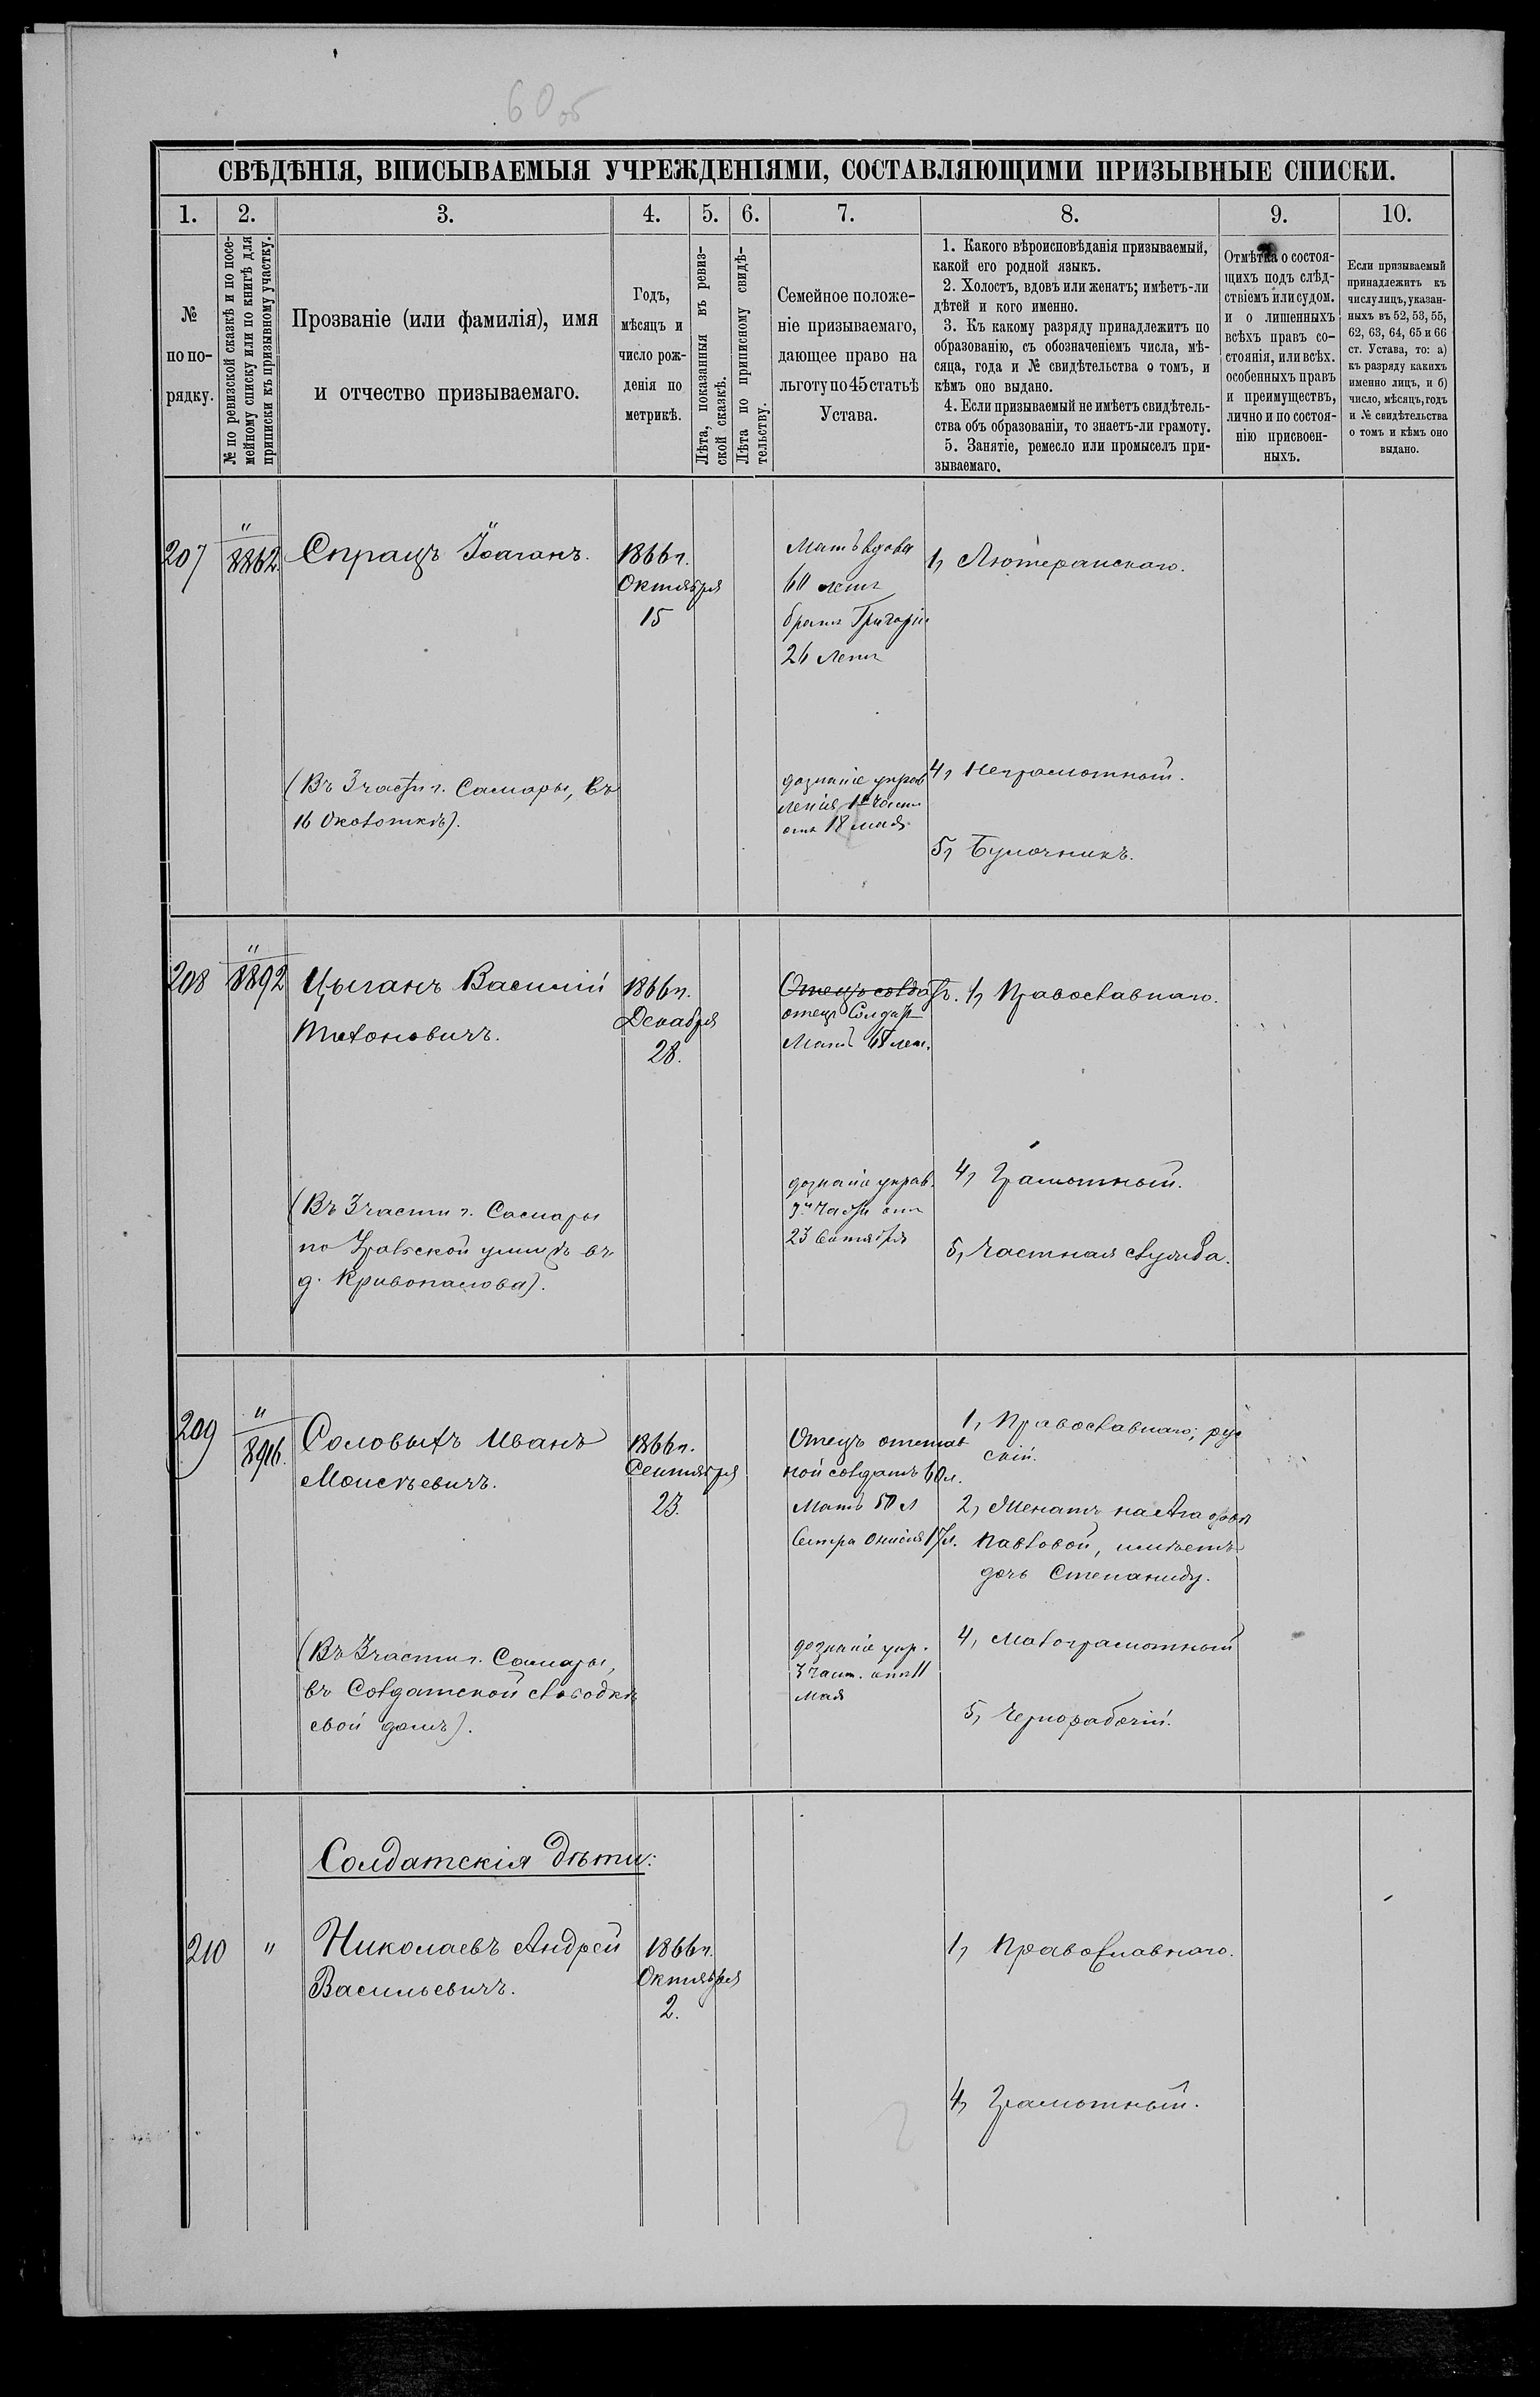 60 об
СВѢДѢНІЯ, ВПИСЫВАЕМЫЯ УЧРЕЖДЕНІЯМИ, СОСТАВЛЯЮЩИМИ ПРИЗЫВНЫЕ СПИСКИ.
1.
2.
3.
4.
5.
6.
7.
8.
9.
10.
№
по по-
рядку.
№ по ревизской сказкѣ и по посе-
мейному списку или по книгѣ для
приписки къ призывному участку.
Прозваніе (или фамилія), имя
и отчество призываемаго.
Годъ,
мѣсяцъ и
число рож-
денія по
метрикѣ.
Лѣта, показанныя въ ревиз-
ской сказкѣ.
Лѣта по приписному свидѣ-
тельству.
Семейное положе-
ніе призываемаго,
дающее право на
льготу по 45 статьѣ
Устава.
1. Какого вѣроисповѣданія призываемый,
какой его родной языкъ.
2. Холостъ, вдовъ или женатъ; имѣетъ-ли
дѣтей и кого именно.
3. Къ какому разряду принадлежитъ по
образованію, съ обозначеніемъ числа, мѣ-
сяца, года и № свидѣтельства о томъ, и
кѣмъ оно выдано.
4. Если призываемый не имѣетъ свидѣтель-
ства объ образованіи, то знаетъ-ли грамоту.
5. Занятіе, ремесло или промыселъ при-
зываемаго.
Отмѣтка о состоя-
щихъ подъ слѣд-
ствіемъ или судом.
и о лишенныхъ
всѣхъ правъ со-
стоянія, или всѣх.
особенныхъ правъ
и преимуществъ,
лично и по состоя-
нію присвоен-
ныхъ.
Если призываемый
принадлежитъ къ
числу лицъ, указан-
ныхъ въ 52, 53, 55,
62, 63, 64, 65 и 66
ст. Устава, то: а)
къ разряду какихъ
именно лицъ, и б)
число, мѣсяцъ, годъ
и № свидѣтельства
о томъ и кѣмъ оно
выдано.
207
"
8862.
Спрацъ Іоаганъ.
1866 г.
Октября
15
Мать вдова
60 летъ
братъ Григорій
26 летъ
1, Лютеранскаго.
(Въ 3 части г. Самары, въ
16 Околоткѣ).
дознаніе управ
ленія 1й части
отъ 18 мая
4, Неграмотный.
5, Булочникъ.
208
"
8892
Цыганъ Василій
Титоновичъ.
1866 г.
Декабря
28.
Отецъ солдатъ.
отецъ Солдатъ
Мать 68 лет.
1, Православнаго.
(Въ 3 части г. Самары
по Уральской улицѣ въ
д. Кривопалова).
дознаніе управ.
3й Части отъ
23 Сентября
4, Грамотный.
5, Частная служба.
209
"
8916.
Соловыхъ Иванъ
Моисѣевичъ.
1866 г.
Сентября
23.
Отецъ отстав
ной солдатъ 60 л.
Мать 50 л
Сестра Онисія 17 л.
1, Православнаго; рус
скій.
2, Женатъ на Агафьѣ
Павловой, имѣетъ
дочь Степаниду.
(Въ 3 части г. Самары,
въ Солдатской слободкѣ
свой домъ).
дознаніе упр.
3 част. отъ 11
мая
4, Малограмотный
5, Чернорабочій.
Солдатскія дѣти:
210
"
Николаевъ Андрей
Васильевичъ.
1866 г.
Октября
2.
1, Православнаго.
4, Грамотный.